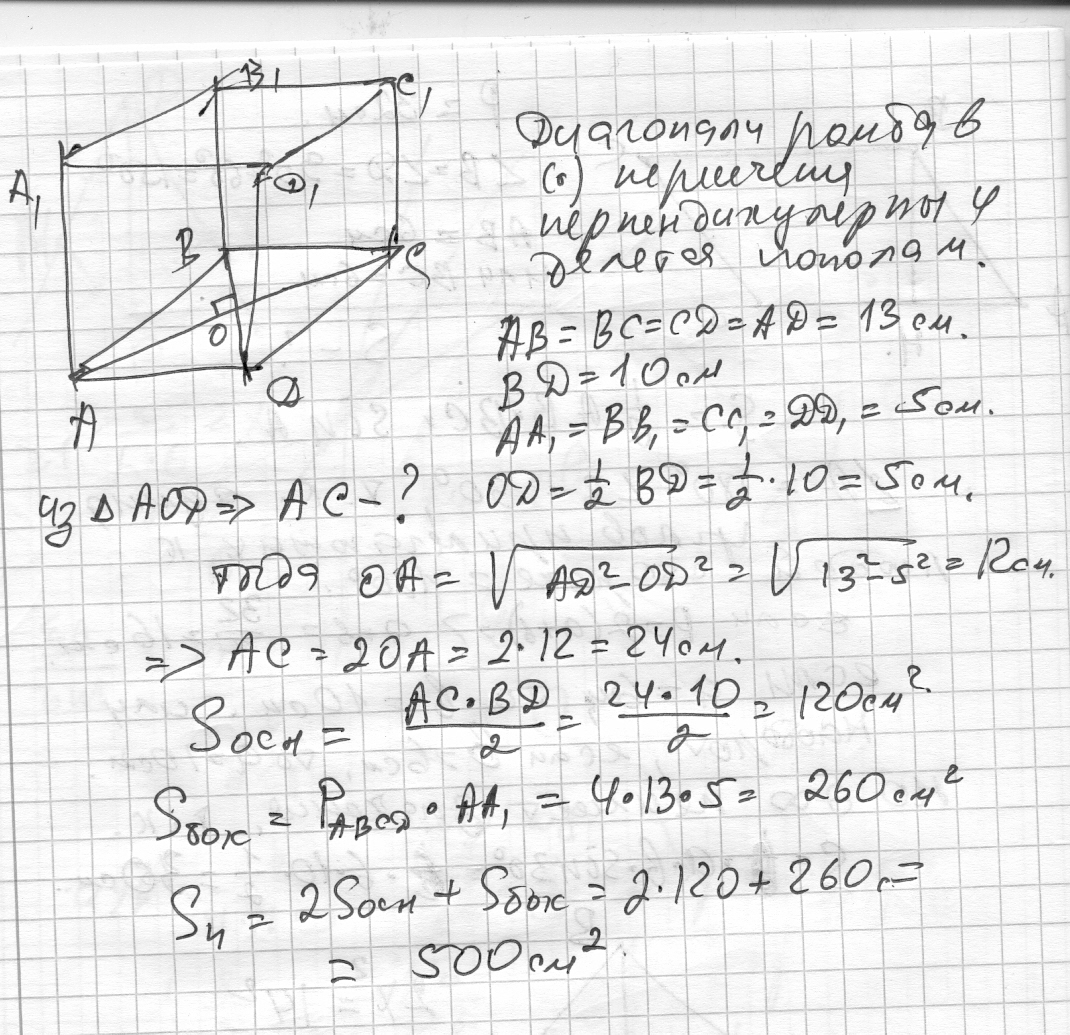 B₁
C₁
A₁
D₁
B
C
O
A
D
Диагонали ромба в
(·) пересечения
перпендикулярны и
делятся пополам.
AB = BC = CD = AD = 13 см.
BD = 10 см
AA₁ = BB₁ = CC₁ = DD₁ = 5 см.
из Δ AOD => AC - ? OD = 1/2 BD = 1/2 · 10 = 5 см.
тогда OA = √(AD² - OD²) = √(13² - 5²) = 12 см.
=> AC = 2OA = 2 · 12 = 24 см.
Sосн = AC · BD / 2 = 24 · 10 / 2 = 120 см².
Sбок = P_ABCD · AA₁ = 4 · 13 · 5 = 260 см²
Sп = 2Sосн + Sбок = 2 · 120 + 260 =
= 500 см².